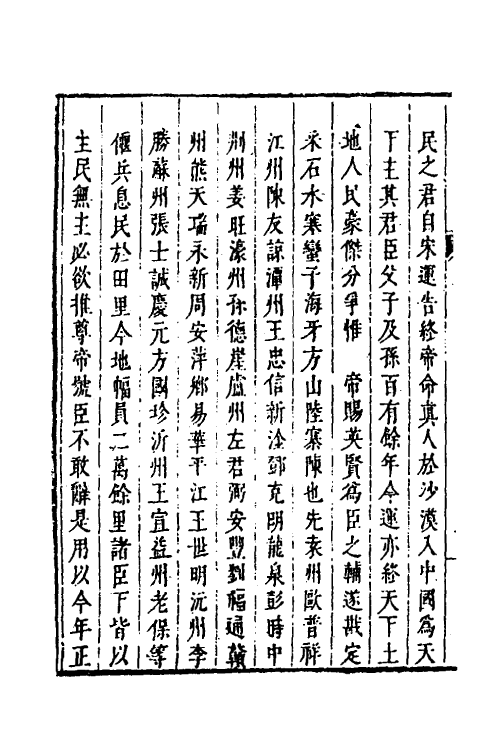 民之君自宋運告終帝命真人於沙漠入中國為天
下主其君臣父子及孫百有餘年今運亦終天下土
地人民豪傑分爭惟　帝賜英賢為臣之輔遂戡定
采石水寨蠻子海牙方山陸寨陳也先袁州歐普祥
江州陳友諒潭州王忠信新淦鄧克明龍泉彭時中
荆州姜旺濠州孫德崖廬州左君弼安豐劉福通贛
州熊天瑞永新周安萍鄉易華平江王世明沅州李
勝蘇州張士誠慶元方國珍沂州王宣益州老保等
偃兵息民於田里今地幅員二萬餘里諸臣下皆以
生民無主必欲推尊帝號臣不敢辭是用以今年正